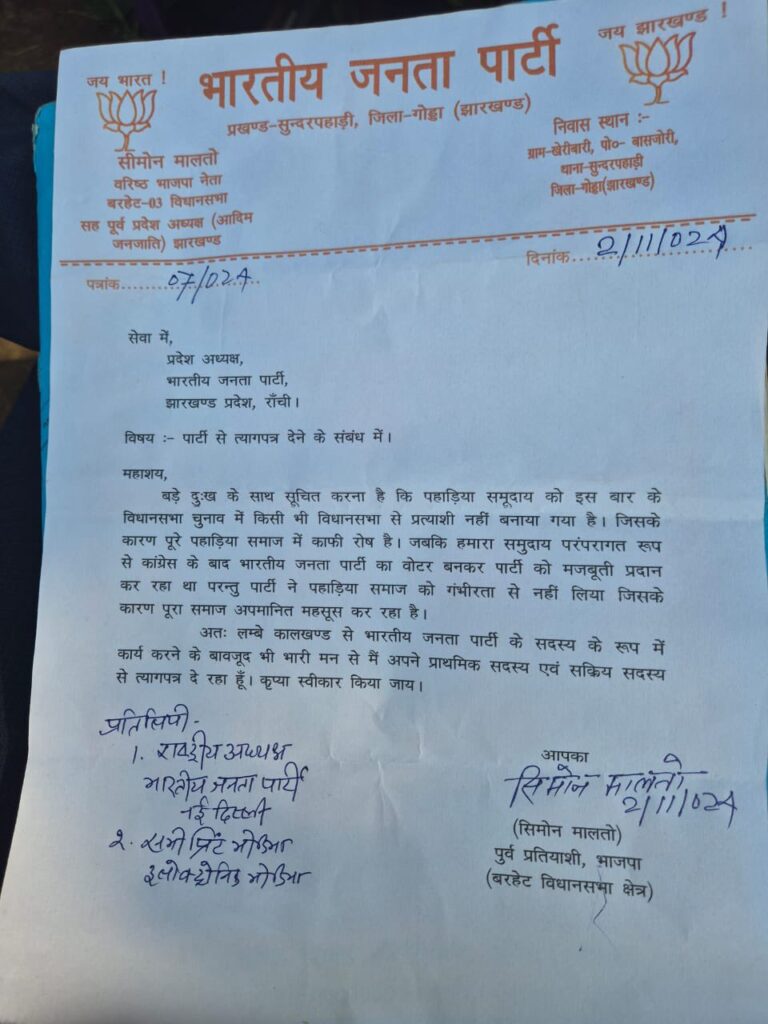 जय भारत !
जय झारखण्ड !
भारतीय जनता पार्टी
प्रखण्ड-सुन्दरपहाड़ी, जिला-गोड्डा (झारखण्ड)
सीमोन मालतो
वरिष्ठ भाजपा नेता
बरहेट-03 विधानसभा
सह पूर्व प्रदेश अध्यक्ष (आदिम
जनजाति) झारखण्ड
निवास स्थान :-
ग्राम-खेरीबारी, पो०- बासजोरी,
थाना-सुन्दरपहाड़ी
जिला-गोड्डा(झारखण्ड)
पत्रांक......07/024......
दिनांक....2/11/024....
सेवा में,
प्रदेश अध्यक्ष,
भारतीय जनता पार्टी,
झारखण्ड प्रदेश, राँची।
विषय :- पार्टी से त्यागपत्र देने के संबंध में।
महाशय,
बड़े दुःख के साथ सूचित करना है कि पहाड़िया समूदाय को इस बार के
विधानसभा चुनाव में किसी भी विधानसभा से प्रत्याशी नहीं बनाया गया है। जिसके
कारण पूरे पहाड़िया समाज में काफी रोष है। जबकि हमारा समुदाय परंपरागत रूप
से कांग्रेस के बाद भारतीय जनता पार्टी का वोटर बनकर पार्टी को मजबूती प्रदान
कर रहा था परन्तु पार्टी ने पहाड़िया समाज को गंभीरता से नहीं लिया जिसके
कारण पूरा समाज अपमानित महसूस कर रहा है।
अतः लम्बे कालखण्ड से भारतीय जनता पार्टी के सदस्य के रूप में
कार्य करने के बावजूद भी भारी मन से मैं अपने प्राथमिक सदस्य एवं सक्रिय सदस्य
से त्यागपत्र दे रहा हूँ। कृप्या स्वीकार किया जाय।
प्रतिलिपी -
1. राष्ट्रीय अध्यक्ष
भारतीय जनता पार्टी
नई दिल्ली
2. सभी प्रिंट मीडिया
इलेक्ट्रोनिक मीडिया
आपका
सिमोन मालतो
2/11/024
(सिमोन मालतो)
पुर्व प्रतियाशी, भाजपा
(बरहेट विधानसभा क्षेत्र)